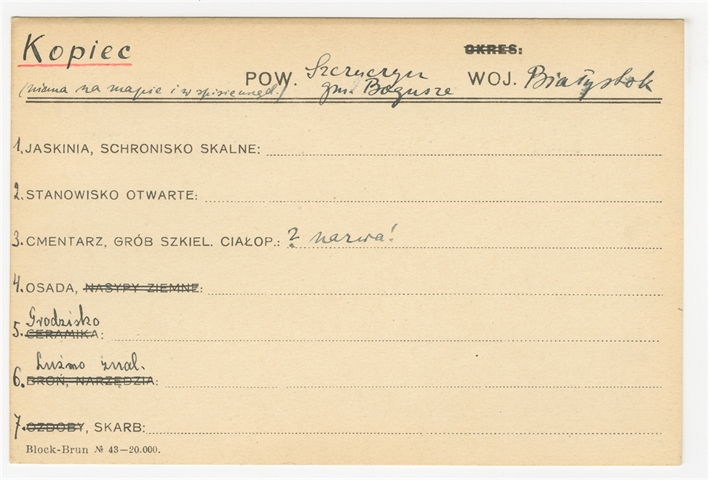 Kopiec
OKRES:
POW. Szczuczyn
WOJ. Białystok
gm. Bogusze
(niema na mapie i w spisie urzęd.)
1. JASKINIA, SCHRONISKO SKALNE:
2. STANOWISKO OTWARTE:
3. CMENTARZ, GRÓB SZKIEL. CIAŁOP.: ? nazwa!
4. OSADA, NASYPY ZIEMNE:
Grodzisko
5. CERAMIKA:
Luźno znal.
6. BROŃ, NARZĘDZIA:
7. OZDOBY, SKARB:
Block-Brun № 43—20.000.